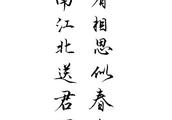 有相思似春
南江北送君